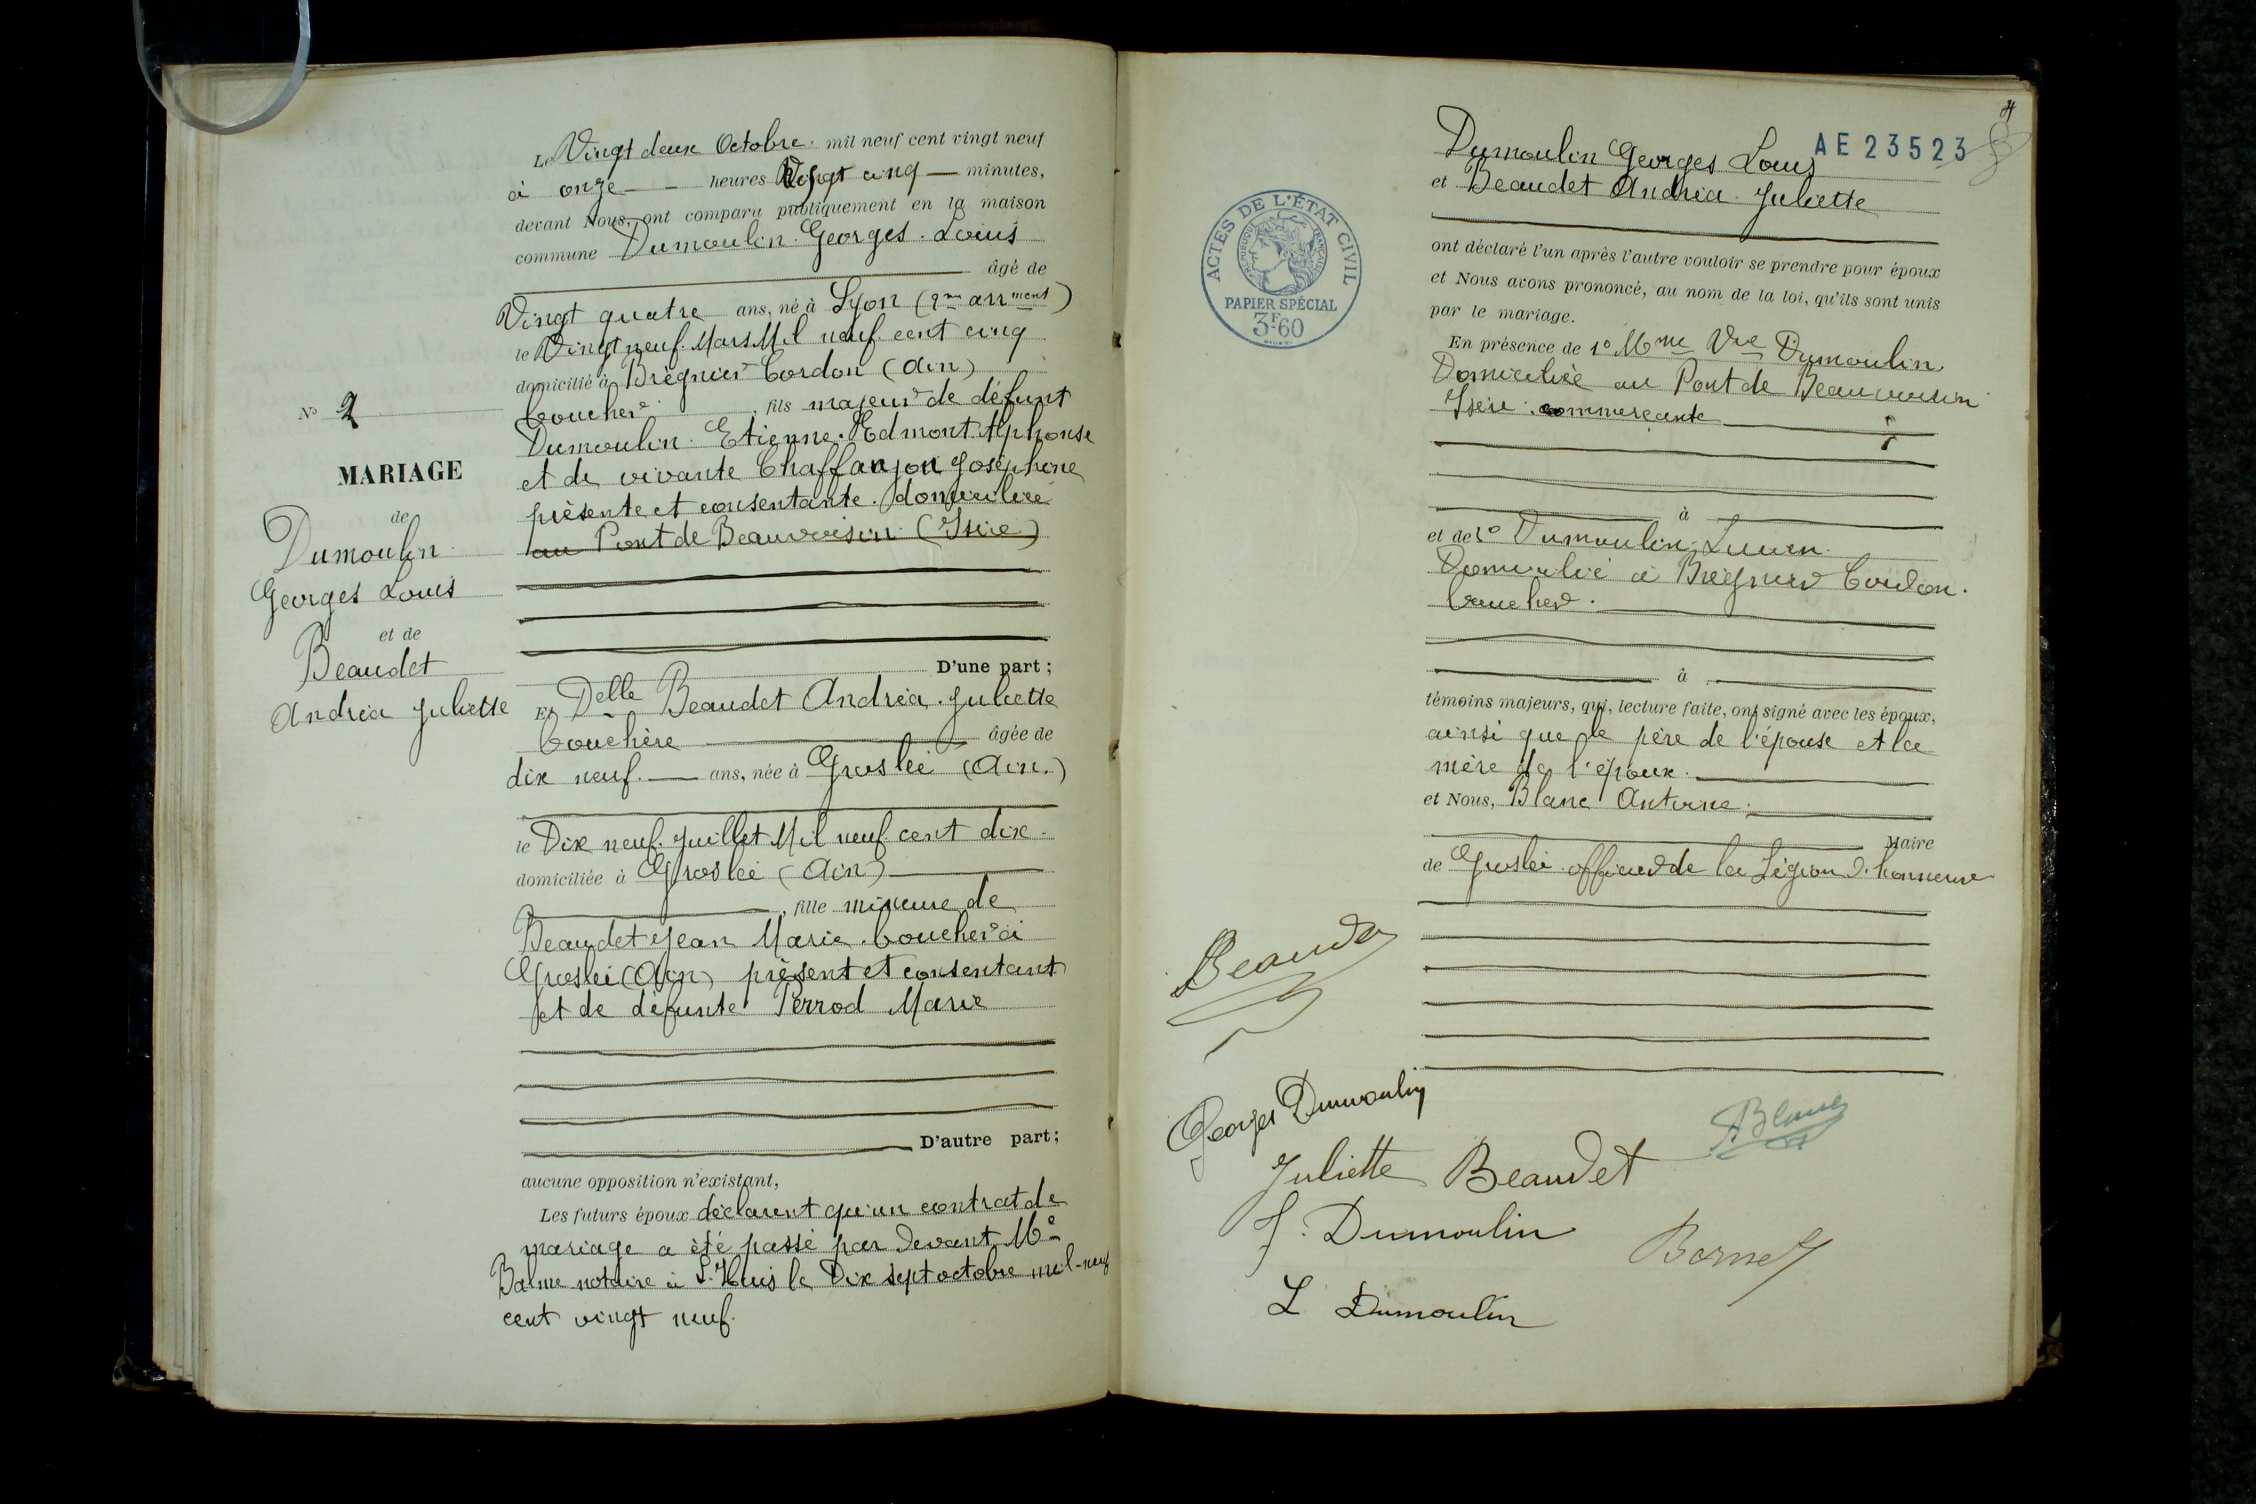 Le Vingt deux Octobre mil neuf cent vingt neuf
à onze heures Vingt cinq minutes,
devant Nous, ont comparu publiquement en la maison
commune Dumoulin Georges Louis
âgé de
Vingt quatre ans, né à Lyon (2me arrment)
le Vingt neuf Mars Mil neuf cent cinq
domicilié à Brégnier Cordon (Ain)
boucher, fils majeur de défunt
Dumoulin Etienne Edmont Alphonse
et de vivante Chaffanjon Joséphine
présente et consentante. domiciliée
au Pont de Beauvoisin (Isère)
D'une part ;
Et Delle Beaudet Andréa Juliette
bouchère âgée de
dix neuf ans, née à Groslée (Ain.)
le Dix neuf Juillet Mil neuf cent dix
domiciliée à Groslée (Ain)
, fille mineure de
Beaudet Jean Marie boucher à
Groslée (Ain) présent et consentant
et de défunte Perrod Marie
D'autre part ;
aucune opposition n'existant,
Les futurs époux déclarent qu'un contrat de
mariage a été passé par devant Me
Balme notaire à St Huis le Dix sept octobre mil neuf
cent vingt neuf.
No 2
MARIAGE
de
Dumoulin
Georges Louis
et de
Beaudet
Andréa Juliette
AE 23523
Dumoulin Georges Louis
et Beaudet Andréa Juliette
ont déclaré l'un après l'autre vouloir se prendre pour époux
et Nous avons prononcé, au nom de la loi, qu'ils sont unis
par le mariage.
En présence de 1o Mme Vve Dumoulin
Domiciliée au Pont de Beauvoisin
Isère commerçante
à
et de 2o Dumoulin Lucien
Domicilié à Brégnier Cordon.
boucher.
à
témoins majeurs, qui, lecture faite, ont signé avec les époux,
ainsi que le père de l'épouse et la
mère de l'époux.
et Nous, Blanc Antoine
Maire
de Groslée officier de la Légion d'honneur
ACTES DE L'ÉTAT CIVIL
RÉPUBLIQUE FRANÇAISE
PAPIER SPÉCIAL
3F60
Beaudet
Georges Dumoulin
ABlanc
Juliette Beaudet
J. Dumoulin
L Dumoulin